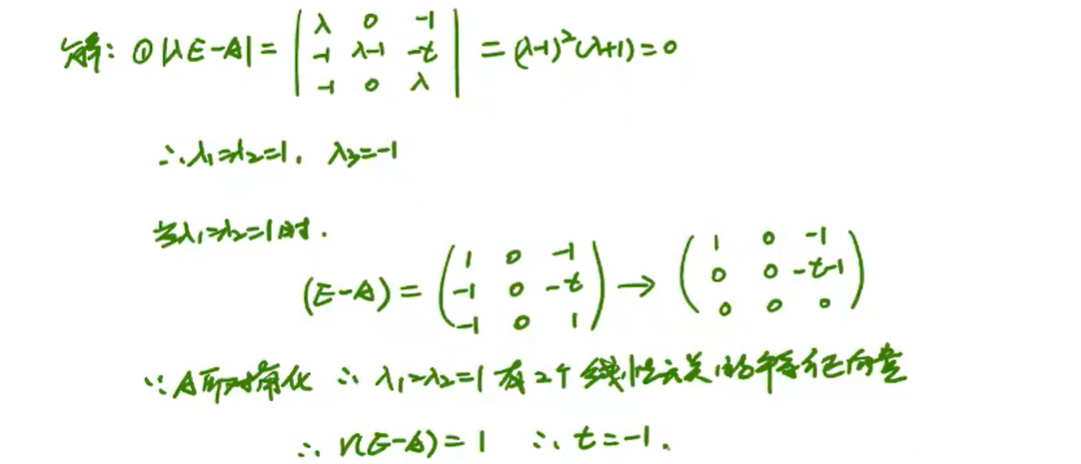 解: ① |λE-A| = | λ 0 -1 ; -1 λ-1 -t ; -1 0 λ | = (λ-1)²(λ+1) = 0
∴ λ₁=λ₂=1, λ₃=-1
当λ₁=λ₂=1时.
(E-A) = ( 1 0 -1 ; -1 0 -t ; -1 0 1 ) → ( 1 0 -1 ; 0 0 -t-1 ; 0 0 0 )
∵ A可对角化 ∴ λ₁=λ₂=1 有2个线性无关的特征向量
∴ r(E-A) = 1 ∴ t=-1.